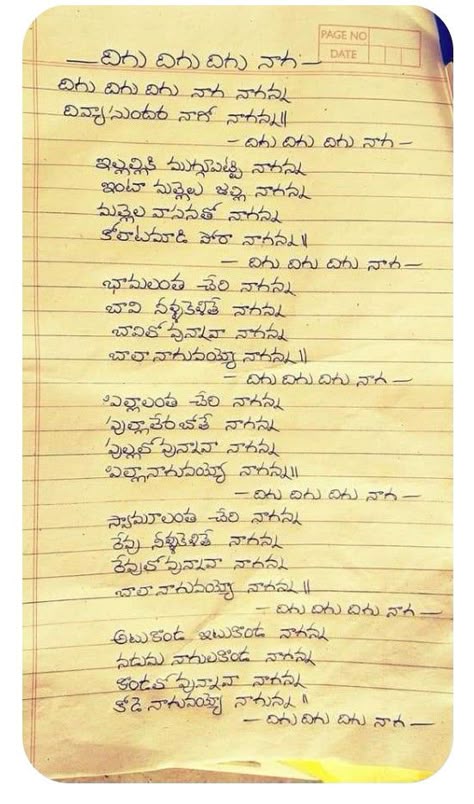 PAGE NO
DATE
— దిగు దిగు దిగు నాగ —
దిగు దిగు దిగు నాగ నాగన్న
దివ్యాసుందర నాగో నాగన్న॥
— దిగు దిగు దిగు నాగ —
ఇల్లల్లికి ముగ్గుపెట్టి నాగన్న
ఇంటా మల్లెలు జల్లి నాగన్న
మల్లెల వాసనతో నాగన్న
కోలాటమాడి పోరా నాగన్న॥
— దిగు దిగు దిగు నాగ —
భామలంత చేరి నాగన్న
బావి నీళ్ళకెళితే నాగన్న
బావిలో వున్నావా నాగన్న
బాలా నాగువయ్యో నాగన్న॥
— దిగు దిగు దిగు నాగ —
పిల్లాలంత చేరి నాగన్న
పుల్లాలేరబోతే నాగన్న
పుల్లలో వున్నావా నాగన్న
పిల్లా నాగువయ్యో నాగన్న॥
— దిగు దిగు దిగు నాగ —
స్వామూలంత చేరి నాగన్న
రేవు నీళ్ళకెళితే నాగన్న
రేవులో వున్నావా నాగన్న
బాలా నాగువయ్యో నాగన్న॥
— దిగు దిగు దిగు నాగ —
అటుకొండ ఇటుకొండ నాగన్న
నడుమ నాగులకొండ నాగన్న
కొండలో వున్నావా నాగన్న
కోడె నాగువయ్యో నాగన్న॥
— దిగు దిగు దిగు నాగ —